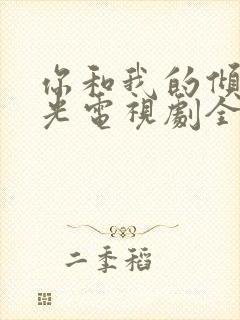 你和我的傾
光電視劇全
二季稻